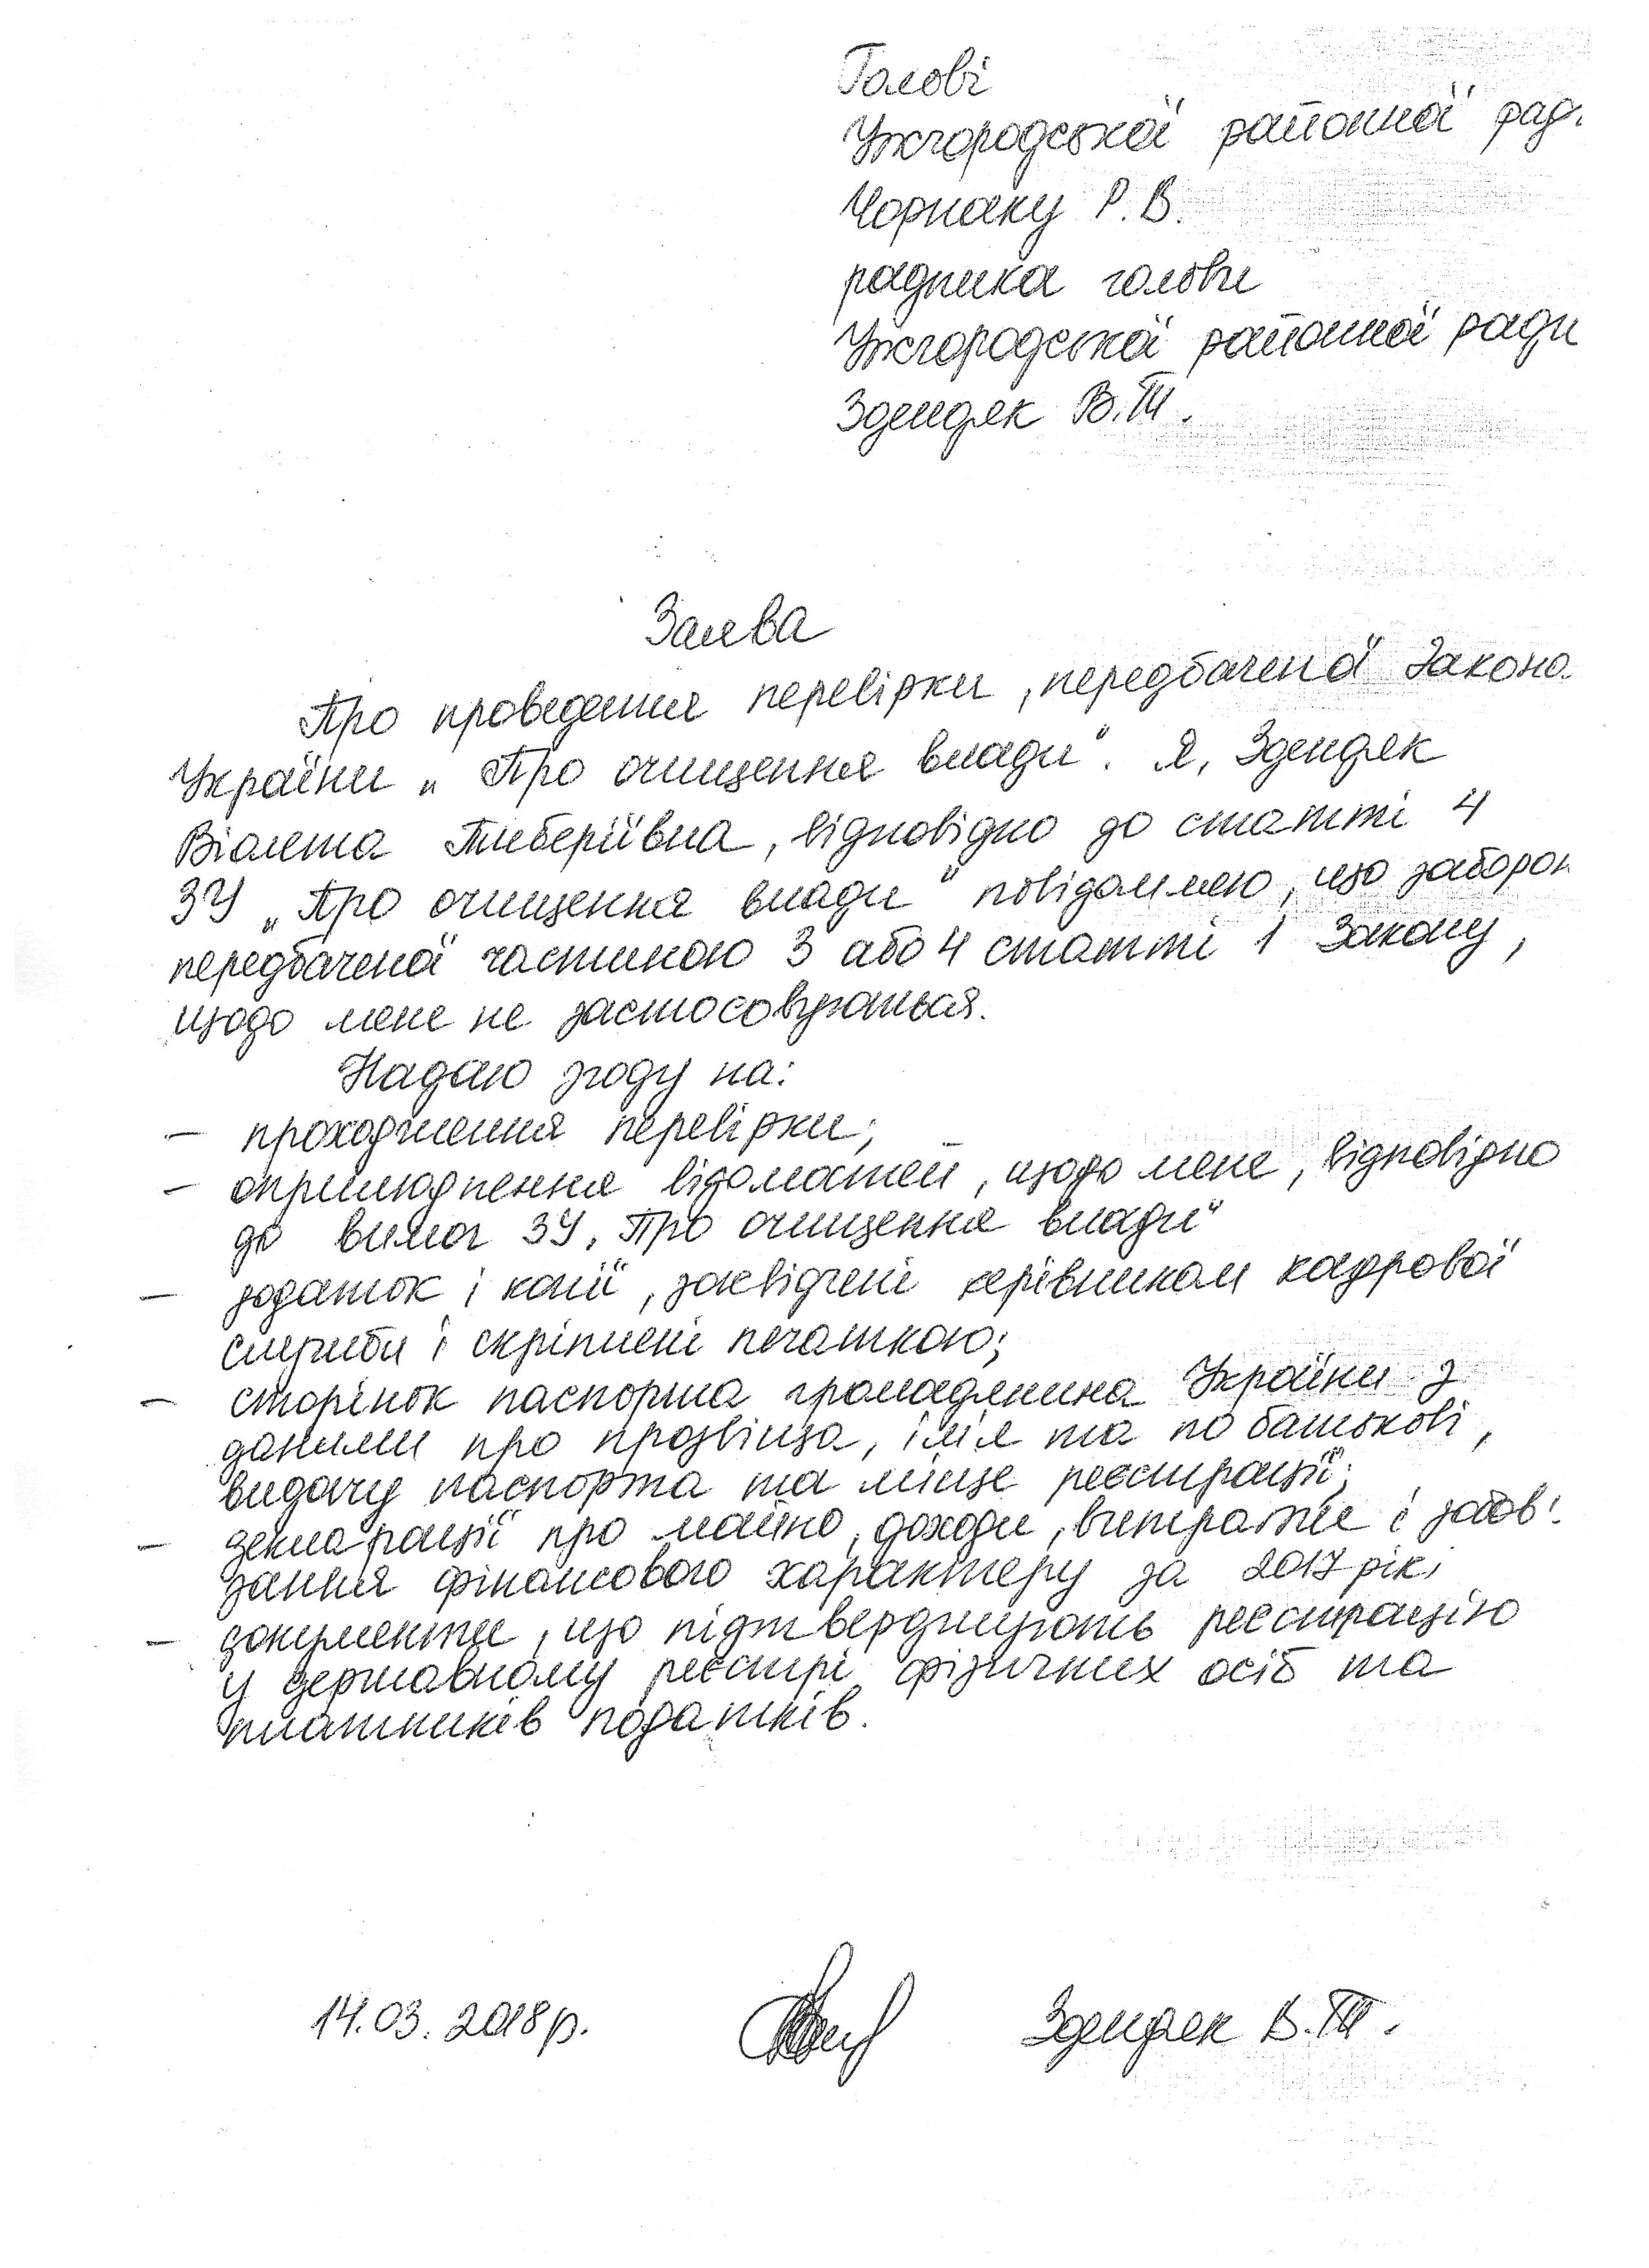 Голові
Ужгородської районної рад
Чорнаку Р. В.
радника голови
Ужгородської районної ради
Здендяк В.Т.
Заява
Про проведення перевірки, передбаченої Законо
України „Про очищення влади“. Я, Здендяк
Віолета Тиберіївна, відповідно до статті 4
ЗУ „Про очищення влади“ повідомляю, що заборон
передбаченої частиною 3 або 4 статті 1 Закону,
щодо мене не застосовуються.
Надаю згоду на:
– проходження перевірки;
– оприлюднення відомостей, щодо мене, відповідно
до вимог ЗУ „Про очищення влади“
– додаток і копії, засвідчені керівником кадрової
служби і скріплені печаткою;
– сторінок паспорта громадянина України з
даними про прозвіща, ім'я та по батькові,
видачу паспорта та місце реєстрації;
– декларації про майно, доходи, витрати і зобов'
зання фінансового характеру за 2017 рік;
– документи, що підтверджують реєстрацію
у державному реєстрі фізичних осіб та
платників податків.
14.03.2018р. Здендяк В.Т.